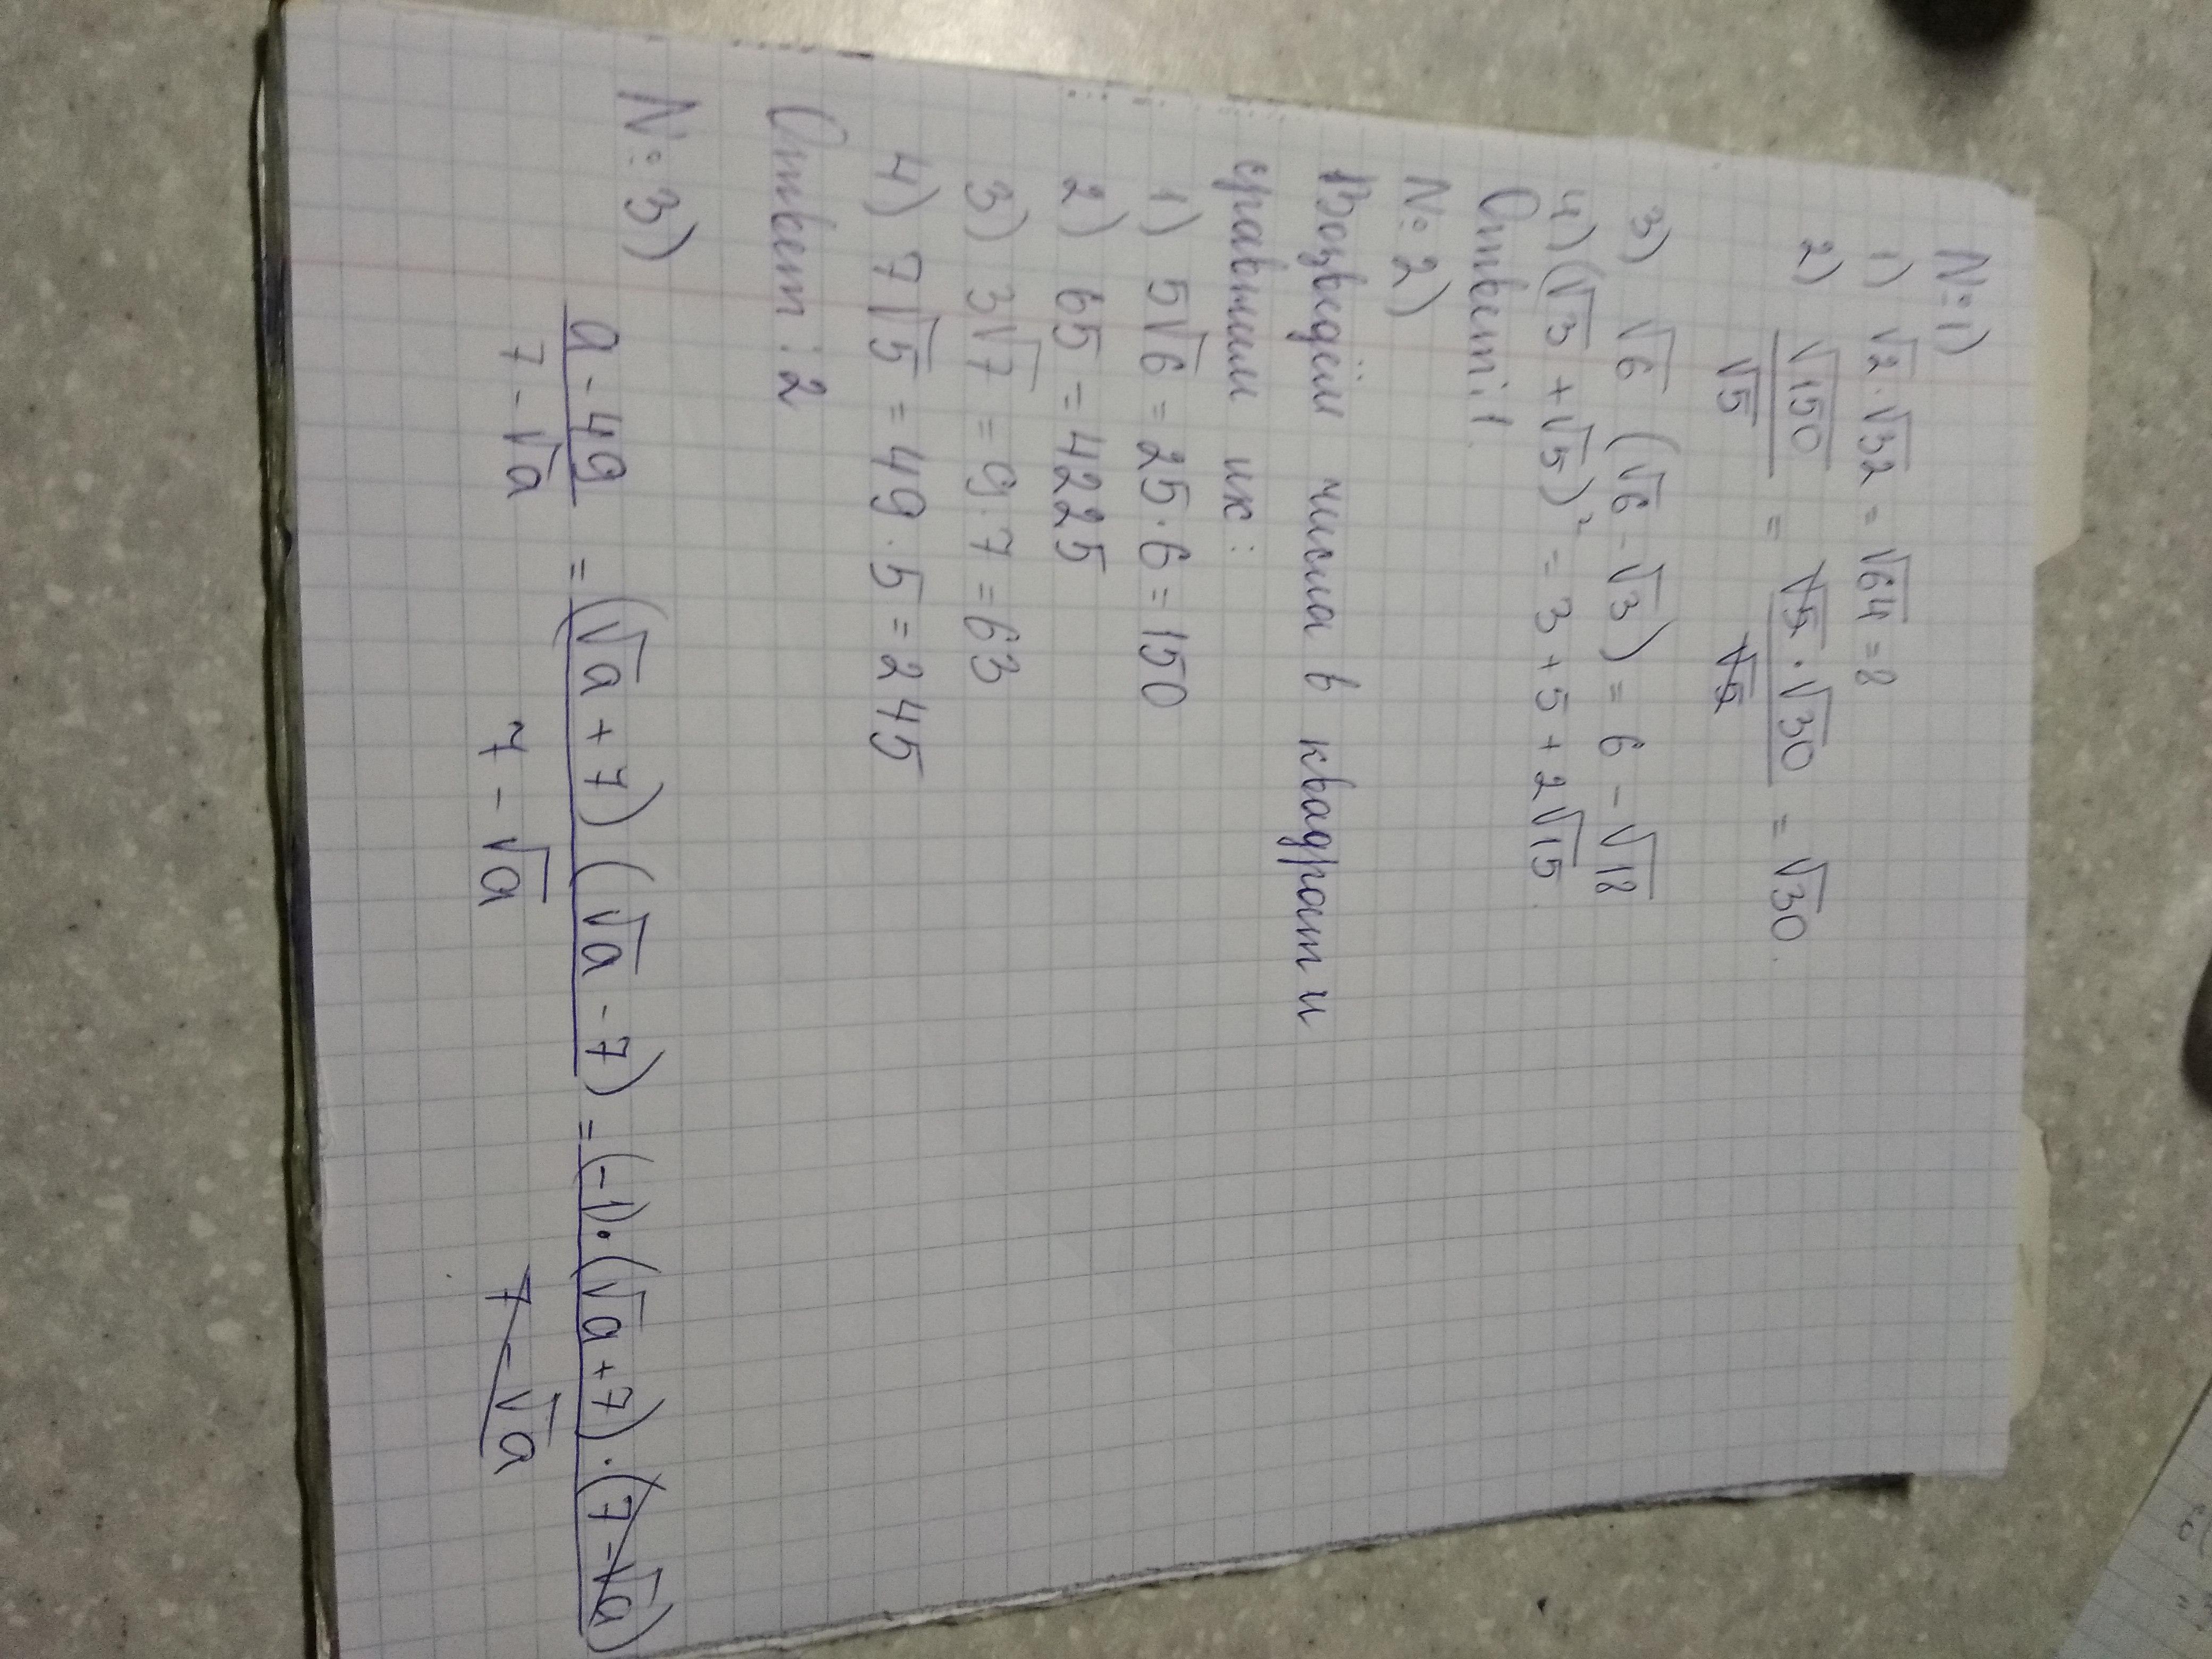 N: 1)
1) √2 · √32 = √64 = 8
2) √150 / √5 = √5 · √30 / √5 = √30.
3) √6 (√6 - √3) = 6 - √18
4) (√3 + √5)² = 3 + 5 + 2√15.
Ответ: 1.
N: 2)
Возведём числа в квадрат и
сравним их:
1) 5√6 = 25 · 6 = 150
2) 65 = 4225
3) 3√7 = 9 · 7 = 63
4) 7√5 = 49 · 5 = 245
Ответ: 2
N: 3)
a - 49 / 7 - √a = (√a + 7)(√a - 7) / 7 - √a = (-1) · (√a + 7) · (7 - √a) / 7 - √a